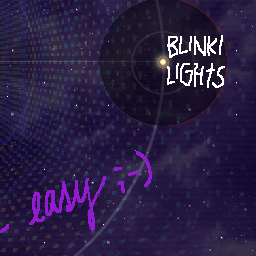 BLINKI
LIGHTS
- easy ;-)